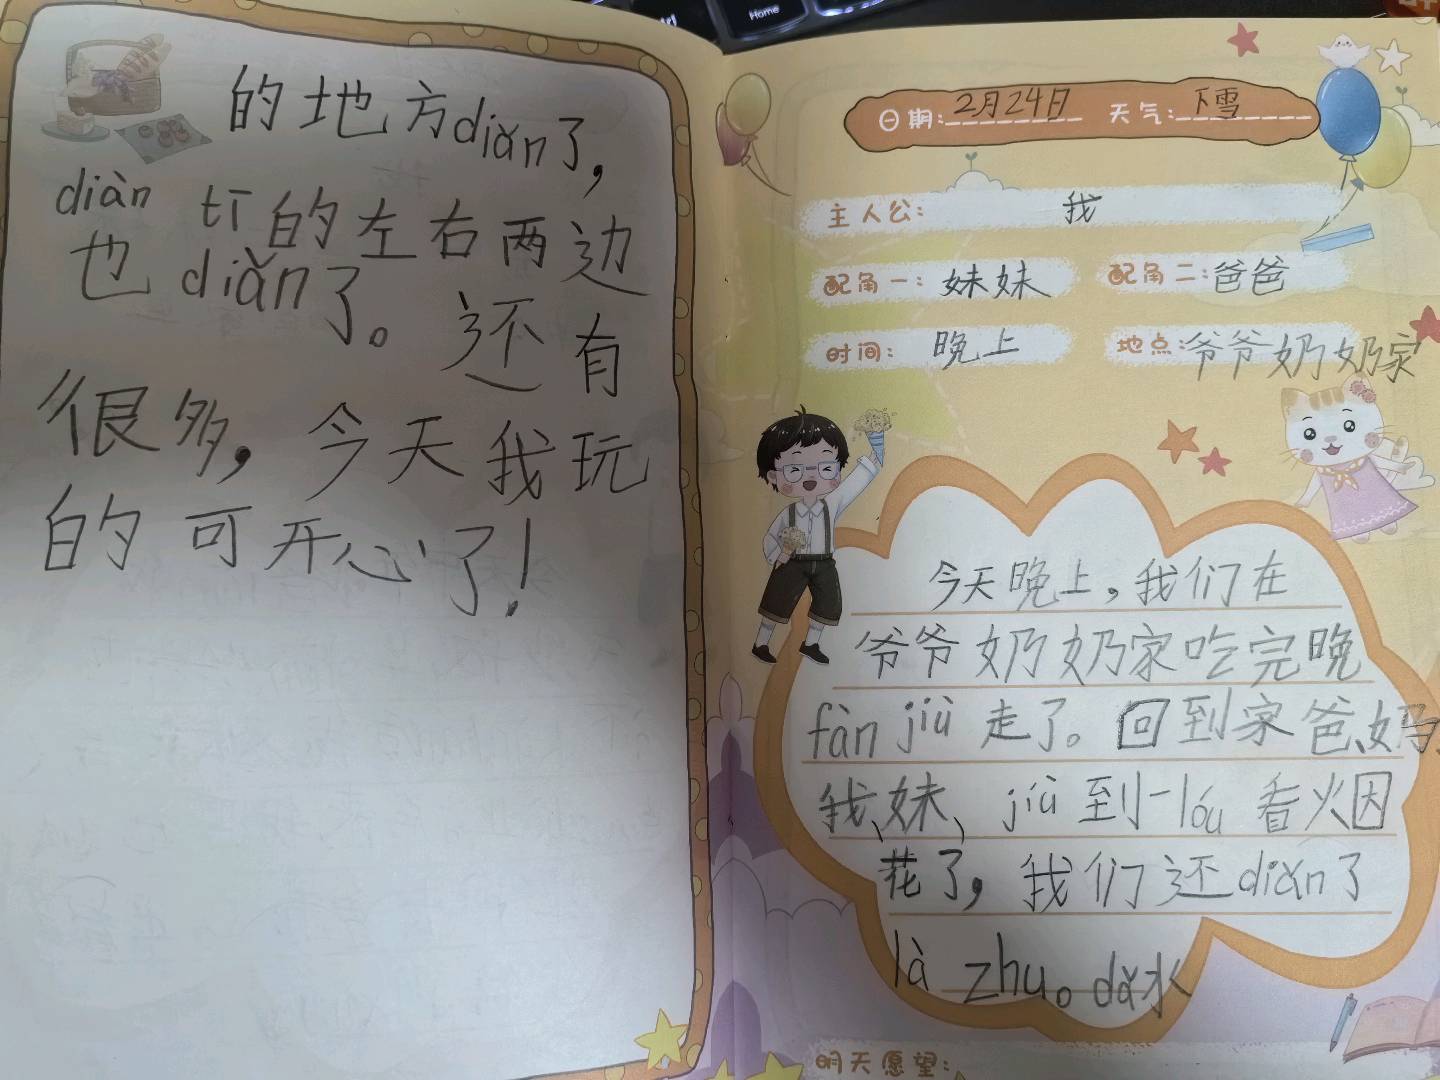 Home
日期:2月24日 天气:下雪
主人公: 我
配角一: 妹妹 配角二: 爸爸
时间: 晚上 地点: 爷爷奶奶家
今天晚上，我们在
爷爷奶奶家吃完晚
fàn jiù 走了。回到家爸、妈、
我、妹、jiù 到一lóu 看火因
花了，我们还diǎn了
là zhu。dǎ水
明天愿望:
的地方diǎn了，
diàn tī的左右两边
也diǎn了。还有
很多，今天我玩
的可开心了！